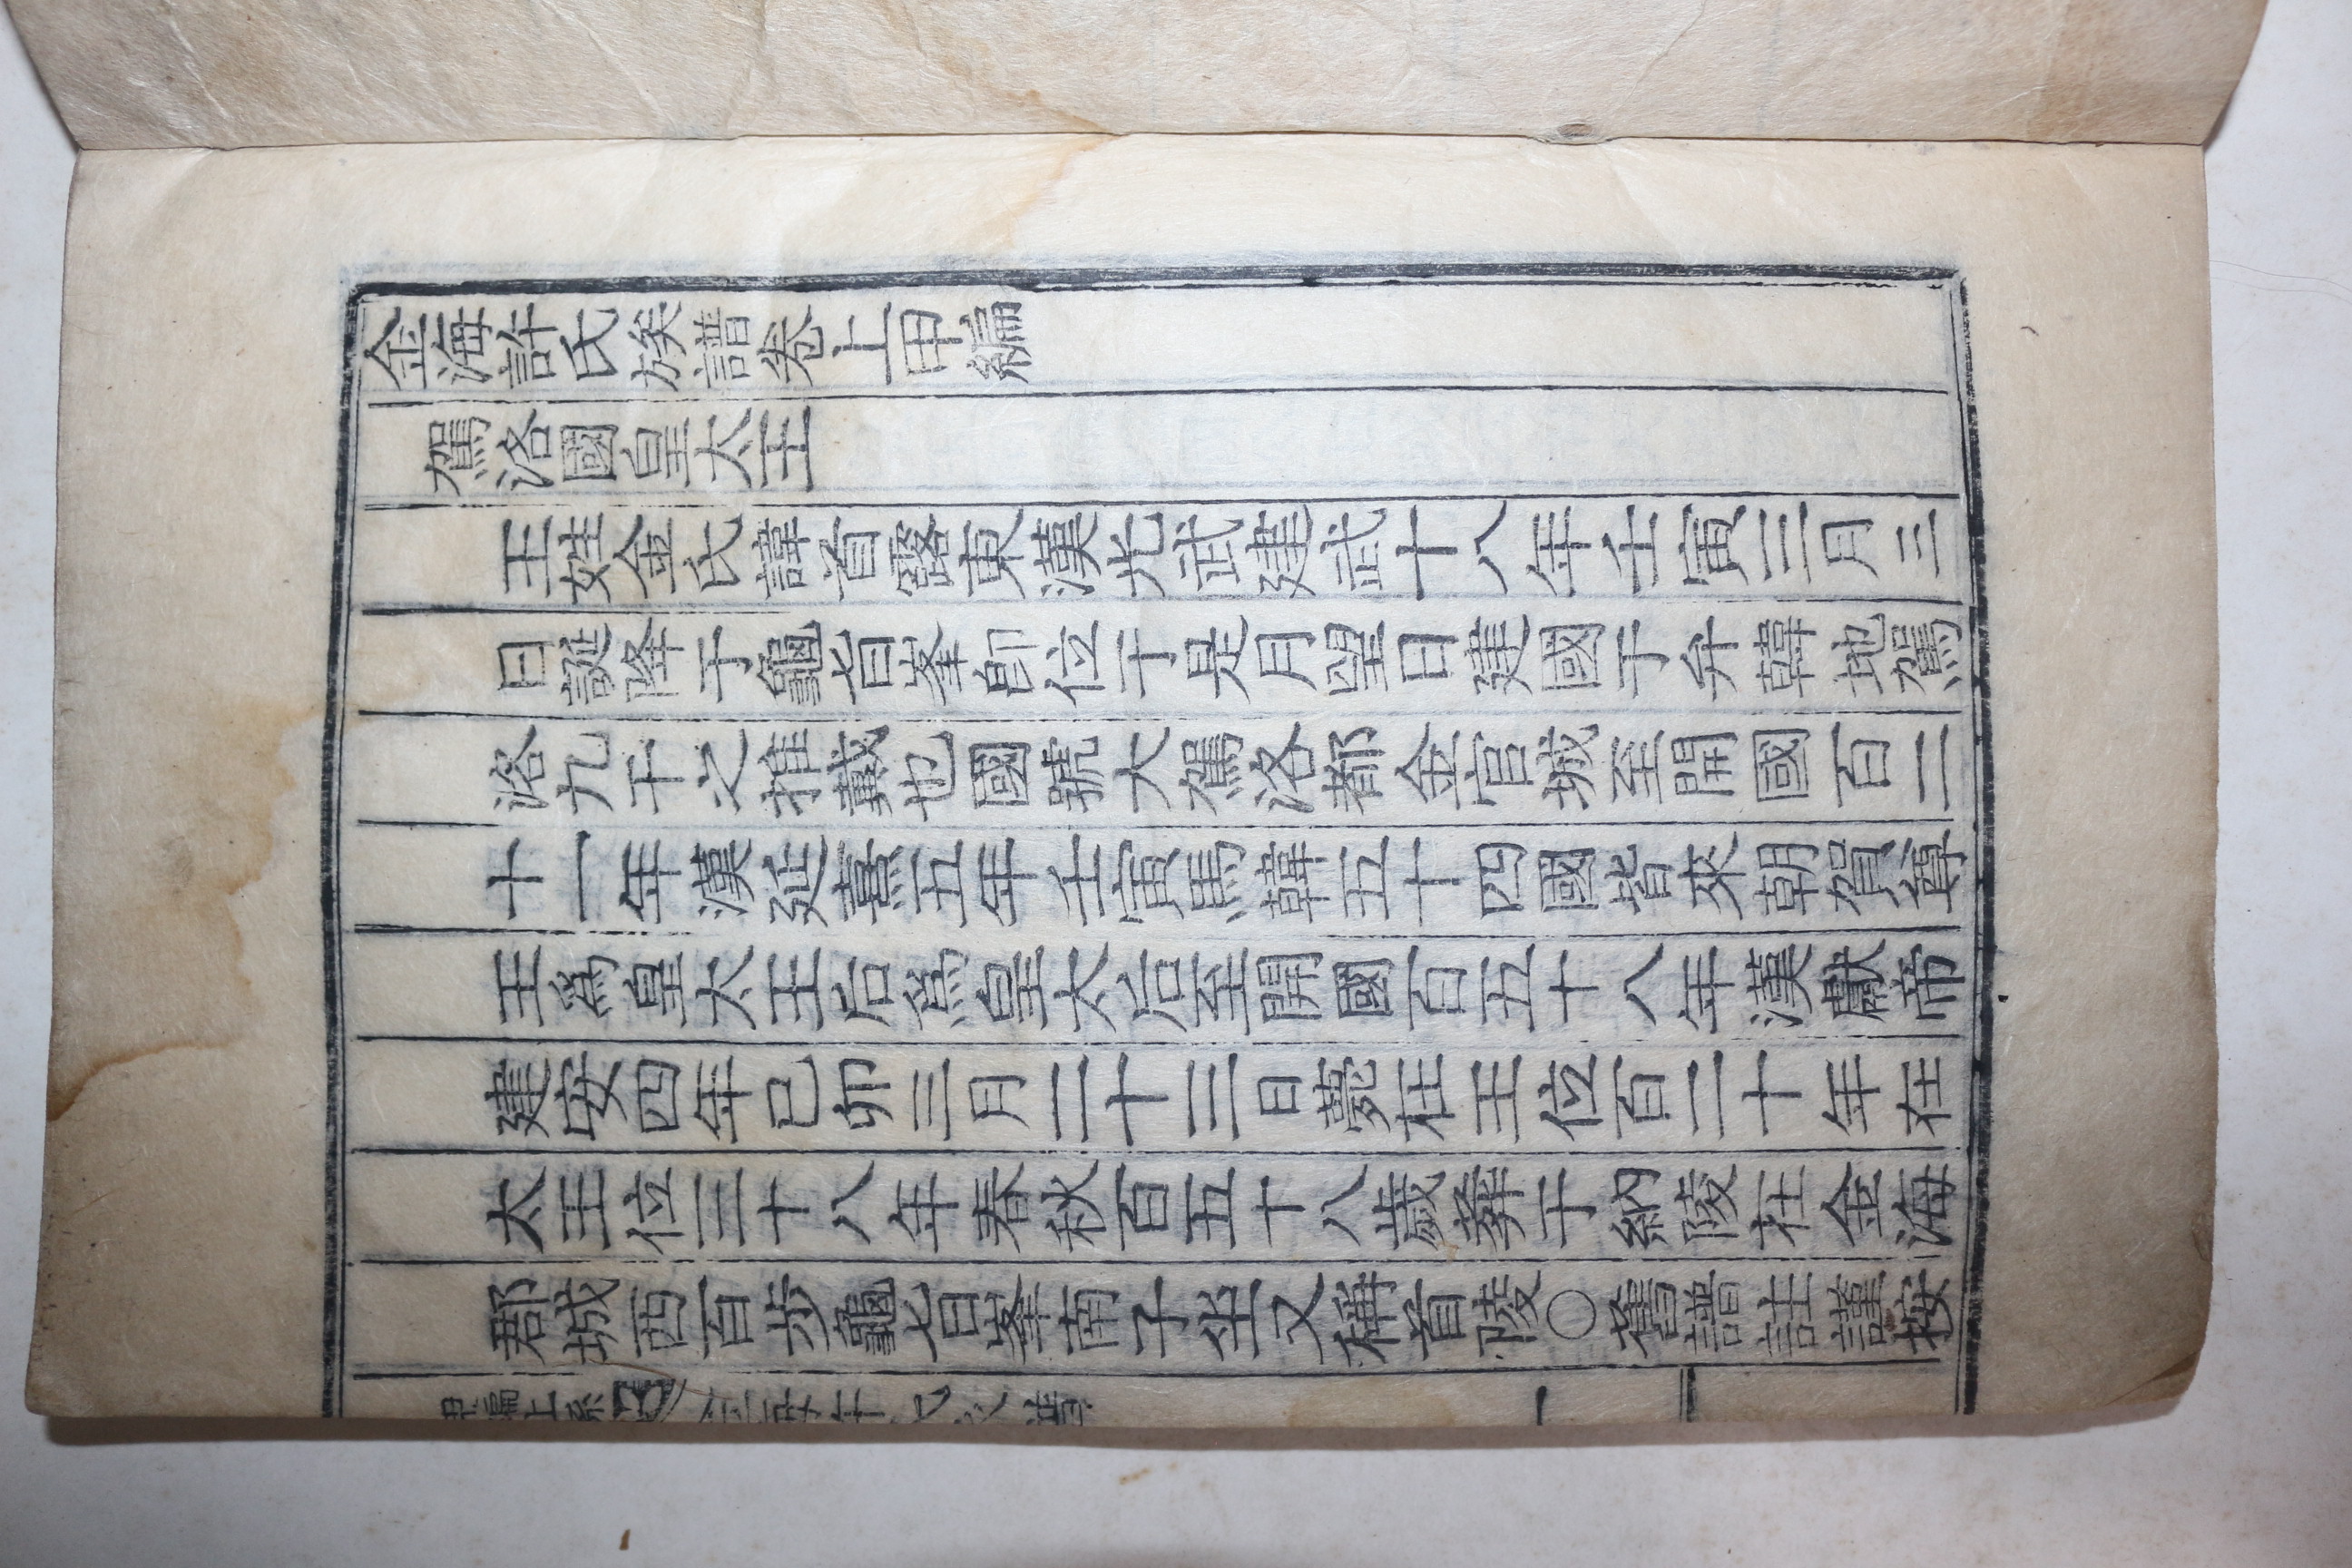 金海許氏族譜卷上甲編
駕洛國皇太王
王姓金氏諱首露東漢光武建武十八年壬寅三月三
日誕降于龜旨峯卽位于是月望日建國于弁韓地駕
洛九干之推戴也國號大駕洛都金官城至開國百二
十一年漢延熹五年壬寅馬韓五十四國皆來朝賀尊
王爲皇太王后爲皇太后至開國百五十八年漢獻帝
建安四年己卯三月二十三日薨在王位百二十年在
太王位三十八年春秋百五十八歲葬于納陵在金海
郡城西百步龜旨峯南子坐又稱首陵○舊譜註謹按
甲編上系 金海許氏族譜 一